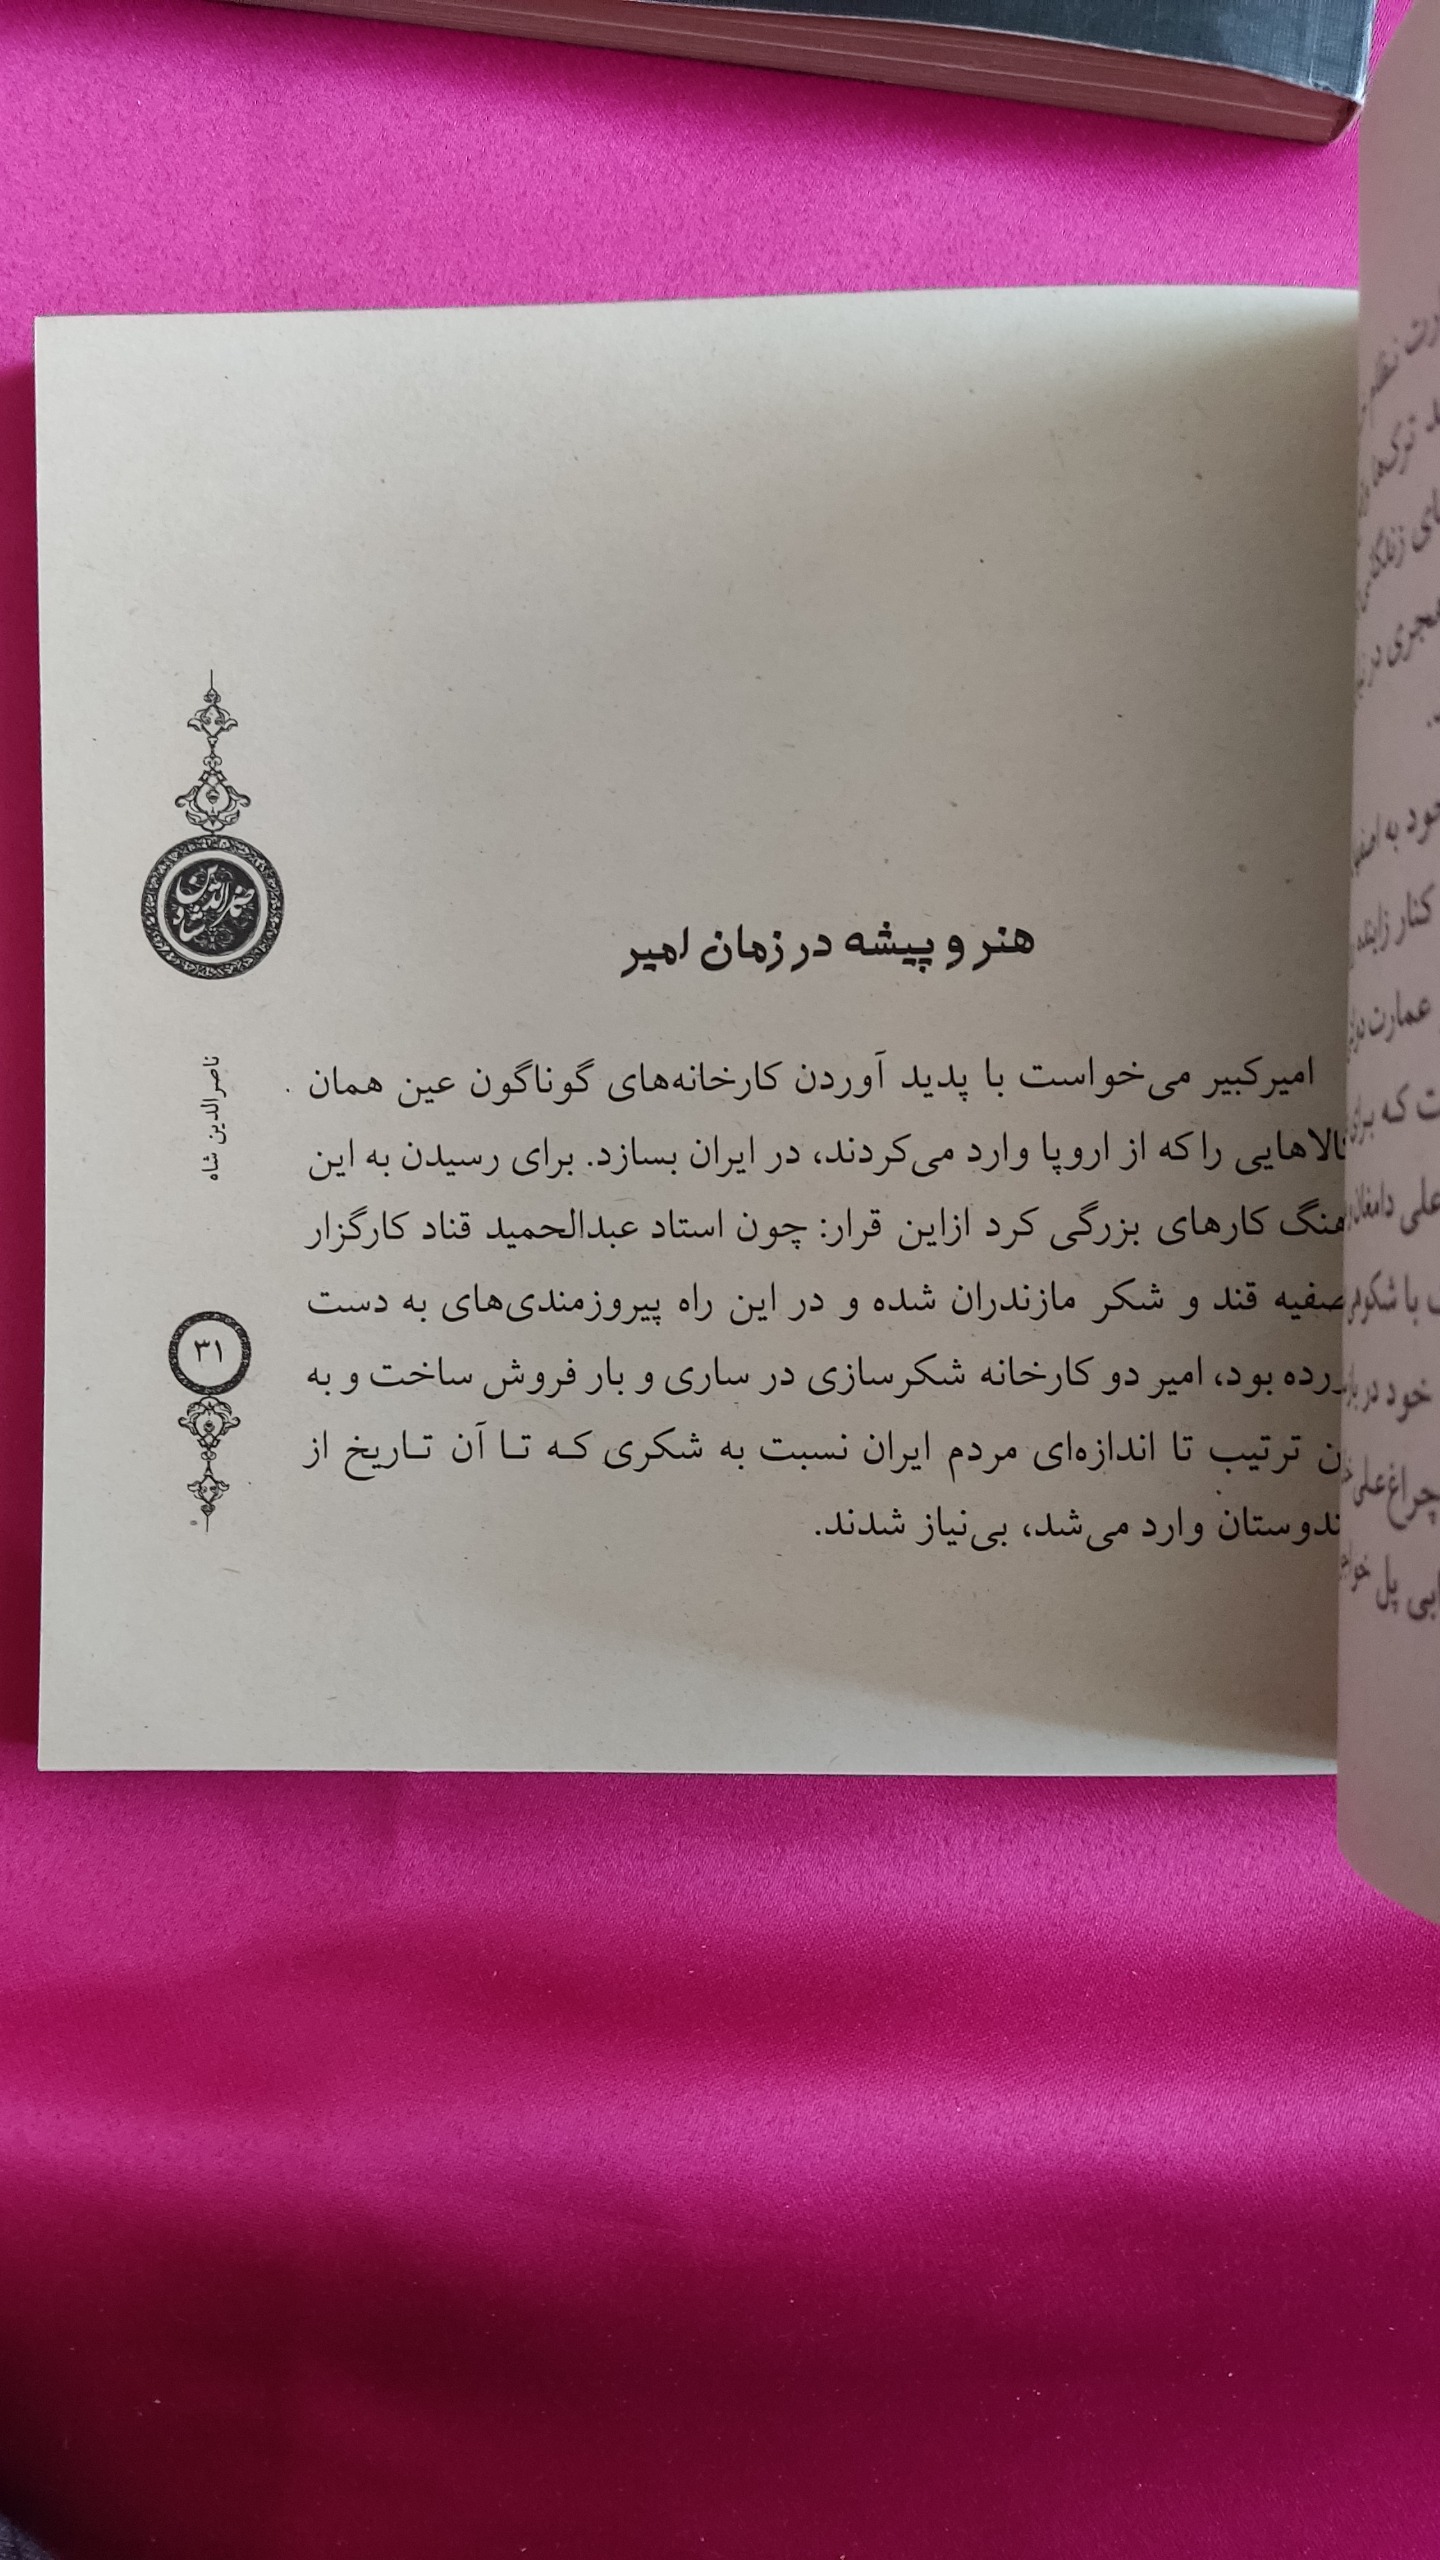 هنر و پیشه در زمان امیر
امیرکبیر می‌خواست با پدید آوردن کارخانه‌های گوناگون عین همان
هایی را که از اروپا وارد می‌کردند، در ایران بسازد. برای رسیدن به این
هنگ کارهای بزرگی کرد ازاین قرار: چون استاد عبدالحمید قناد کارگزار
صفیه قند و شکر مازندران شده و در این راه پیروزمندی‌های به دست
رده بود، امیر دو کارخانه شکرسازی در ساری و بار فروش ساخت و به
ن ترتیب تا اندازه‌ای مردم ایران نسبت به شکری که تا آن تاریخ از
ندوستان وارد می‌شد، بی‌نیاز شدند.
ناصرالدین شاه
ناصرالدین شاه
۳۱
خود به
کنار
عمارت
ت که برای
علی
با شکوهی
خود در
چراغ‌علی
پل